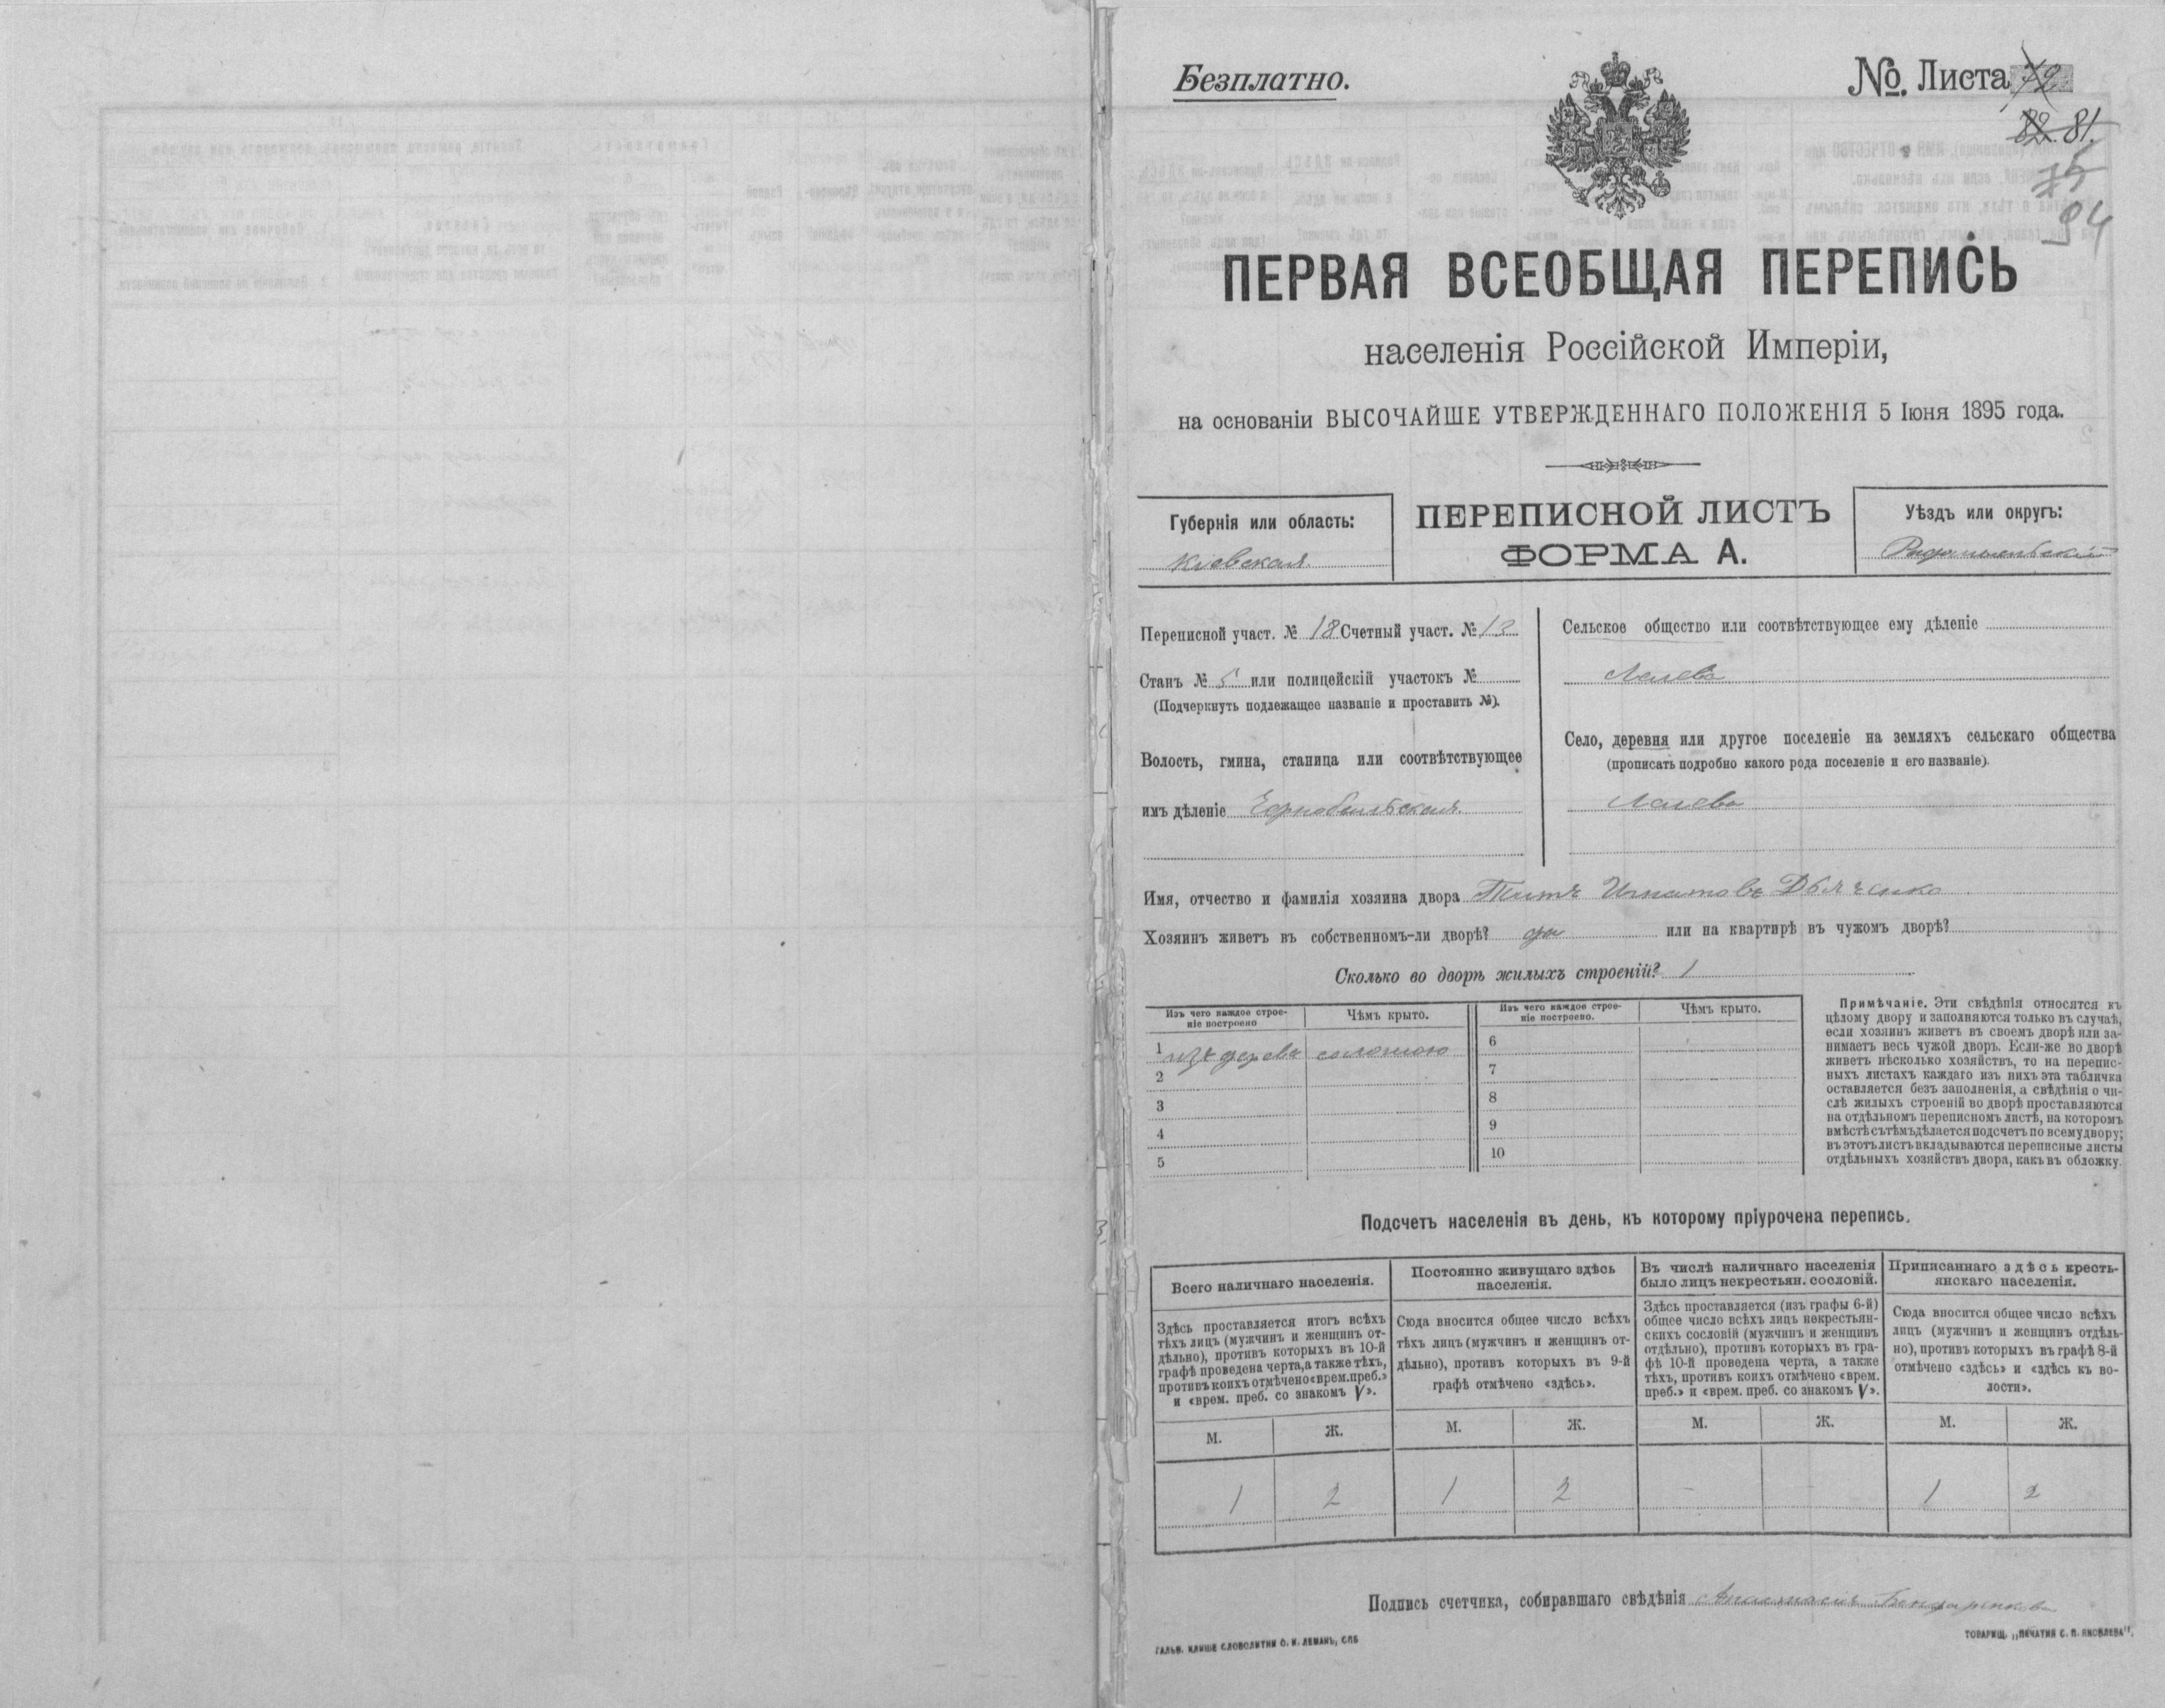 Безплатно.
№ Листа 79
82. 81.
75
94
ПЕРВАЯ ВСЕОБЩАЯ ПЕРЕПИСЬ
населенія Россійской Имперіи,
на основаніи ВЫСОЧАЙШЕ УТВЕРЖДЕННАГО ПОЛОЖЕНІЯ 5 Іюня 1895 года.
Губернія или область:
Кіевская
ПЕРЕПИСНОЙ ЛИСТЪ
ФОРМА А.
Уѣздъ или округъ:
Радомысльскій
Переписной участ. № 18 Счетный участ. № 13
Станъ № 5 или полицейскій участокъ №
(Подчеркнуть подлежащее названіе и проставить №).
Волость, гмина, станица или соотвѣтствующее
имъ дѣленіе Чернобыльская
Сельское общество или соотвѣтствующее ему дѣленіе
Село, деревня или другое поселеніе на земляхъ сельскаго общества
(прописать подробно какого рода поселеніе и его названіе).
Имя, отчество и фамилія хозяина двора Титъ Игнатовъ Дьяченко
Хозяинъ живетъ въ собственномъ-ли дворѣ? да или на квартирѣ въ чужомъ дворѣ?
Сколько во дворѣ жилыхъ строеній? 1
Изъ чего каждое строе-
ніе построено
Чѣмъ крыто.
Изъ чего каждое строе-
ніе построено.
Чѣмъ крыто.
1 изъ дерева соломою
2
3
4
5
6
7
8
9
10
Примѣчаніе. Эти свѣдѣнія относятся къ
цѣлому двору и заполняются только въ случаѣ,
если хозяинъ живетъ въ своемъ дворѣ или за-
нимаетъ весь чужой дворъ. Если-же во дворѣ
живетъ нѣсколько хозяйствъ, то на перепис-
ныхъ листахъ каждаго изъ нихъ эта табличка
оставляется безъ заполненія, а свѣдѣнія о чи-
слѣ жилыхъ строеній во дворѣ проставляются
на отдѣльномъ переписномъ листѣ, на которомъ
вмѣстѣ съ тѣмъ дѣлается подсчетъ по всему двору;
въ этотъ листъ вкладываются переписные листы
отдѣльныхъ хозяйствъ двора, какъ въ обложку.
Подсчетъ населенія въ день, къ которому пріурочена перепись.
Всего наличнаго населенія.
Здѣсь проставляется итогъ всѣхъ
тѣхъ лицъ (мужчинъ и женщинъ от-
дѣльно), противъ которыхъ въ 10-й
графѣ проведена черта, а также тѣхъ,
противъ коихъ отмѣчено «врем. преб.»
и «врем. преб. со знакомъ V».
Постоянно живущаго здѣсь
населенія.
Сюда вносится общее число всѣхъ
тѣхъ лицъ (мужчинъ и женщинъ от-
дѣльно), противъ которыхъ въ 9-й
графѣ отмѣчено «здѣсь».
Въ числѣ наличнаго населенія
было лицъ некрестьян. сословій.
Здѣсь проставляется (изъ графы 6-й)
общее число всѣхъ лицъ некрестьян-
скихъ сословій (мужчинъ и женщинъ
отдѣльно), противъ которыхъ въ гра-
фѣ 10-й проведена черта, а также
тѣхъ, противъ коихъ отмѣчено «врем.
преб.» и «врем. преб. со знакомъ V».
Приписаннаго здѣсь кресть-
янскаго населенія.
Сюда вносится общее число всѣхъ
лицъ (мужчинъ и женщинъ отдѣль-
но), противъ которыхъ въ графѣ 8-й
отмѣчено «здѣсь» и «здѣсь къ во-
лости».
М. Ж. М. Ж. М. Ж. М. Ж.
1 2 1 2 - - 1 2
Подпись счетчика, собиравшаго свѣдѣнія
ГАЛЬВ. КЛИШЕ СЛОВОЛИТНИ О. И. ЛЕМАНЪ, СПБ
ТОВАРИЩ. „ПЕЧАТНЯ С. П. ЯКОВЛЕВА".